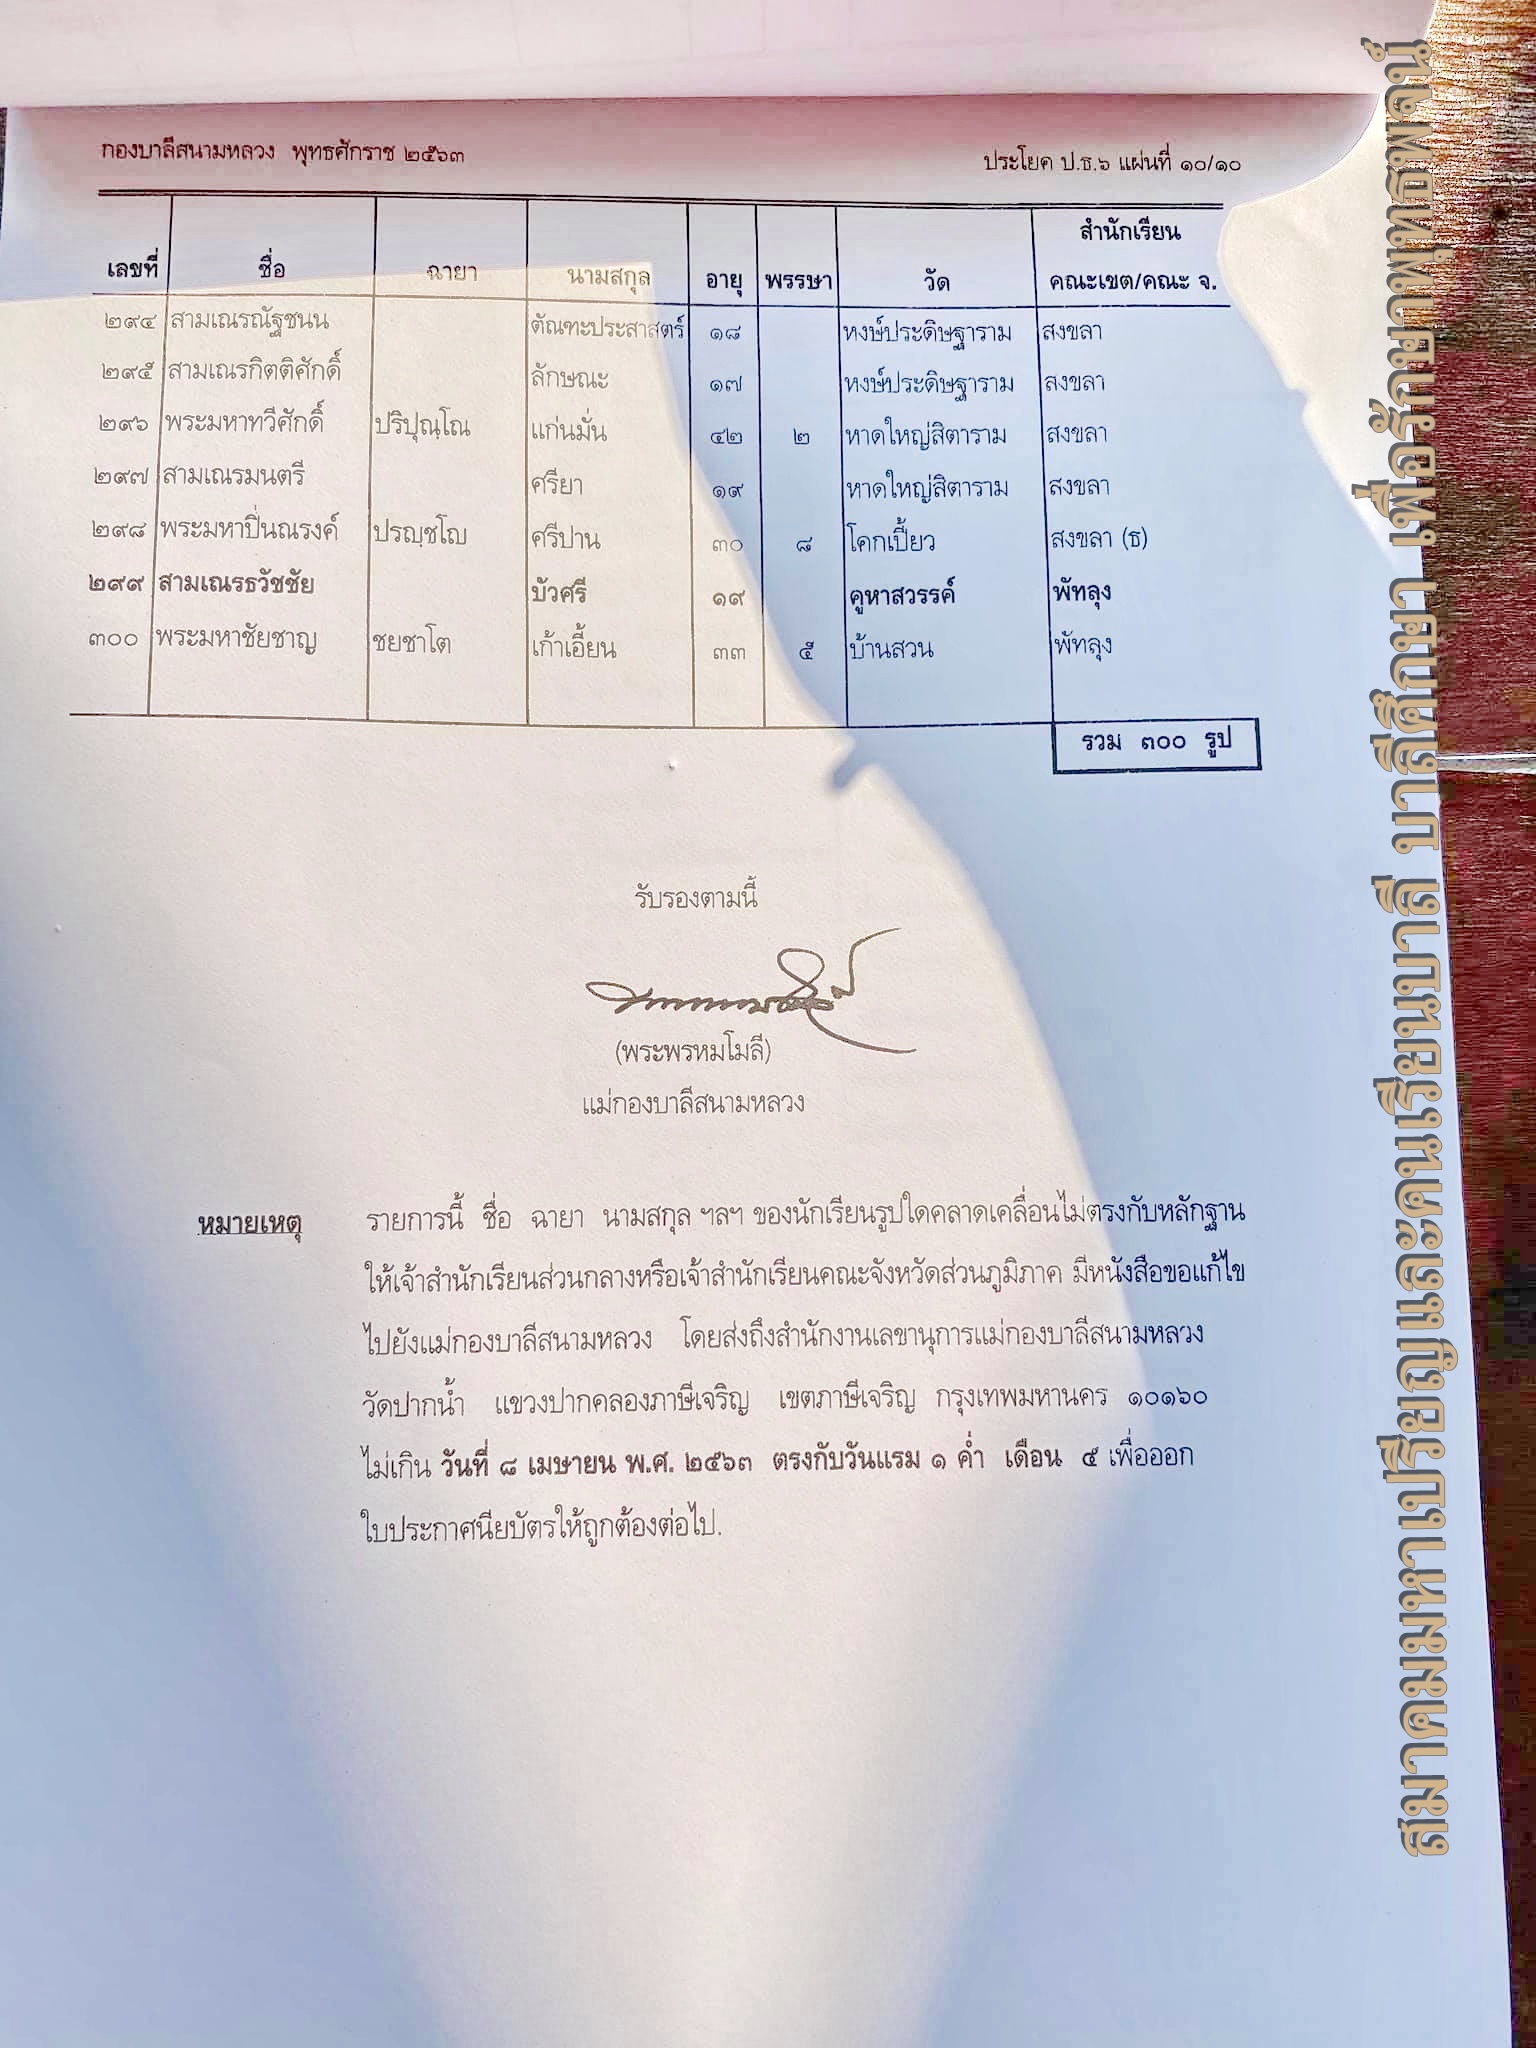 กองบาลีสนามหลวง พุทธศักราช ๒๕๖๓
ประโยค ป.ธ.๖ แผ่นที่ ๑๐/๑๐
เลขที่ ชื่อ ฉายา นามสกุล อายุ พรรษา วัด สำนักเรียน คณะเขต/คณะ จ.
๒๙๔ สามเณรณัฐชนน ตัณฑะประสาสตร์ ๑๘ หงษ์ประดิษฐาราม สงขลา
๒๙๕ สามเณรกิตติศักดิ์ ลักษณะ ๑๗ หงษ์ประดิษฐาราม สงขลา
๒๙๖ พระมหาทวีศักดิ์ ปริปุณฺโณ แก่นมั่น ๔๒ ๒ หาดใหญ่สิตาราม สงขลา
๒๙๗ สามเณรมนตรี ศรียา ๑๙ หาดใหญ่สิตาราม สงขลา
๒๙๘ พระมหาปิ่นณรงค์ ปรญฺชโญ ศรีปาน ๓๐ ๘ โคกเปี้ยว สงขลา (ธ)
๒๙๙ สามเณรธวัชชัย บัวศรี ๑๙ คูหาสวรรค์ พัทลุง
๓๐๐ พระมหาชัยชาญ ชยชาโต เก้าเอี้ยน ๓๓ ๕ บ้านสวน พัทลุง
รวม ๓๐๐ รูป
รับรองตามนี้
(พระพรหมโมลี)
แม่กองบาลีสนามหลวง
หมายเหตุ รายการนี้ ชื่อ ฉายา นามสกุล ฯลฯ ของนักเรียนรูปใดคลาดเคลื่อนไม่ตรงกับหลักฐาน
ให้เจ้าสำนักเรียนส่วนกลางหรือเจ้าสำนักเรียนคณะจังหวัดส่วนภูมิภาค มีหนังสือขอแก้ไข
ไปยังแม่กองบาลีสนามหลวง โดยส่งถึงสำนักงานเลขานุการแม่กองบาลีสนามหลวง
วัดปากน้ำ แขวงปากคลองภาษีเจริญ เขตภาษีเจริญ กรุงเทพมหานคร ๑๐๑๖๐
ไม่เกิน วันที่ ๘ เมษายน พ.ศ. ๒๕๖๓ ตรงกับวันแรม ๑ ค่ำ เดือน ๕ เพื่อออก
ใบประกาศนียบัตรให้ถูกต้องต่อไป.
สมาคมมหาเปรียญและคนเรียนบาลี บาลีศึกษา เพื่อรักษาพุทธพจน์